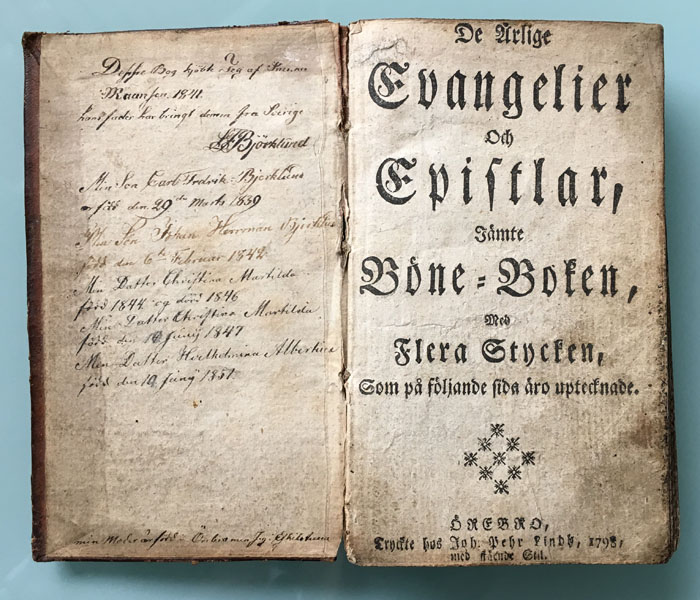 Desse Bog kjöbte Jeg af
1841.
hans fader har bringt denne fra Sverige
Björklund
Min Son Carl Fredrik Bjorklund
er föd den 29de Marts 1839
Min Son Johan Herrman
föd den 6te Februar 1842
Min Datter Christina Martilda
föd 1844 og död 1846
Min Datter Christina Martilda
föd den Junij 1847
Min Datter Albertina
föd den 10 Junij 1851
min Moder är föd i
De Årlige
Evangelier
Och
Epistlar,
Jämte
Böne-Boken,
Med
Flera Stycken,
Som på följande sida äro uptecknade.
ÖREBRO,
Tryckte hos Joh. Pehr Lindh, 1798,
med stående Stil.